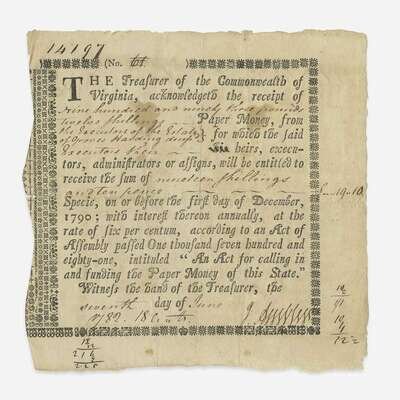 14197
(No. tot )
THE Treasurer of the Commonwealth of
Virginia, acknowledgeth the receipt of
nine hundred and ninety three pounds
twelve shillings Paper Money, from
the Executors of the Estate
of for which the said
Executors their heirs, execu-
tors, administrators or assigns, will be entitled to
receive the sum of nineteen shillings
and ten pence £ 19.10
Specie, on or before the first day of December,
1790; with interest thereon annually, at the
rate of six per centum, according to an Act of
Assembly passed One thousand seven hundred and
eighty-one, intituled “An Act for calling in
and funding the Paper Money of this State.”
Witness the hand of the Treasurer, the
seventh day of June
1782.